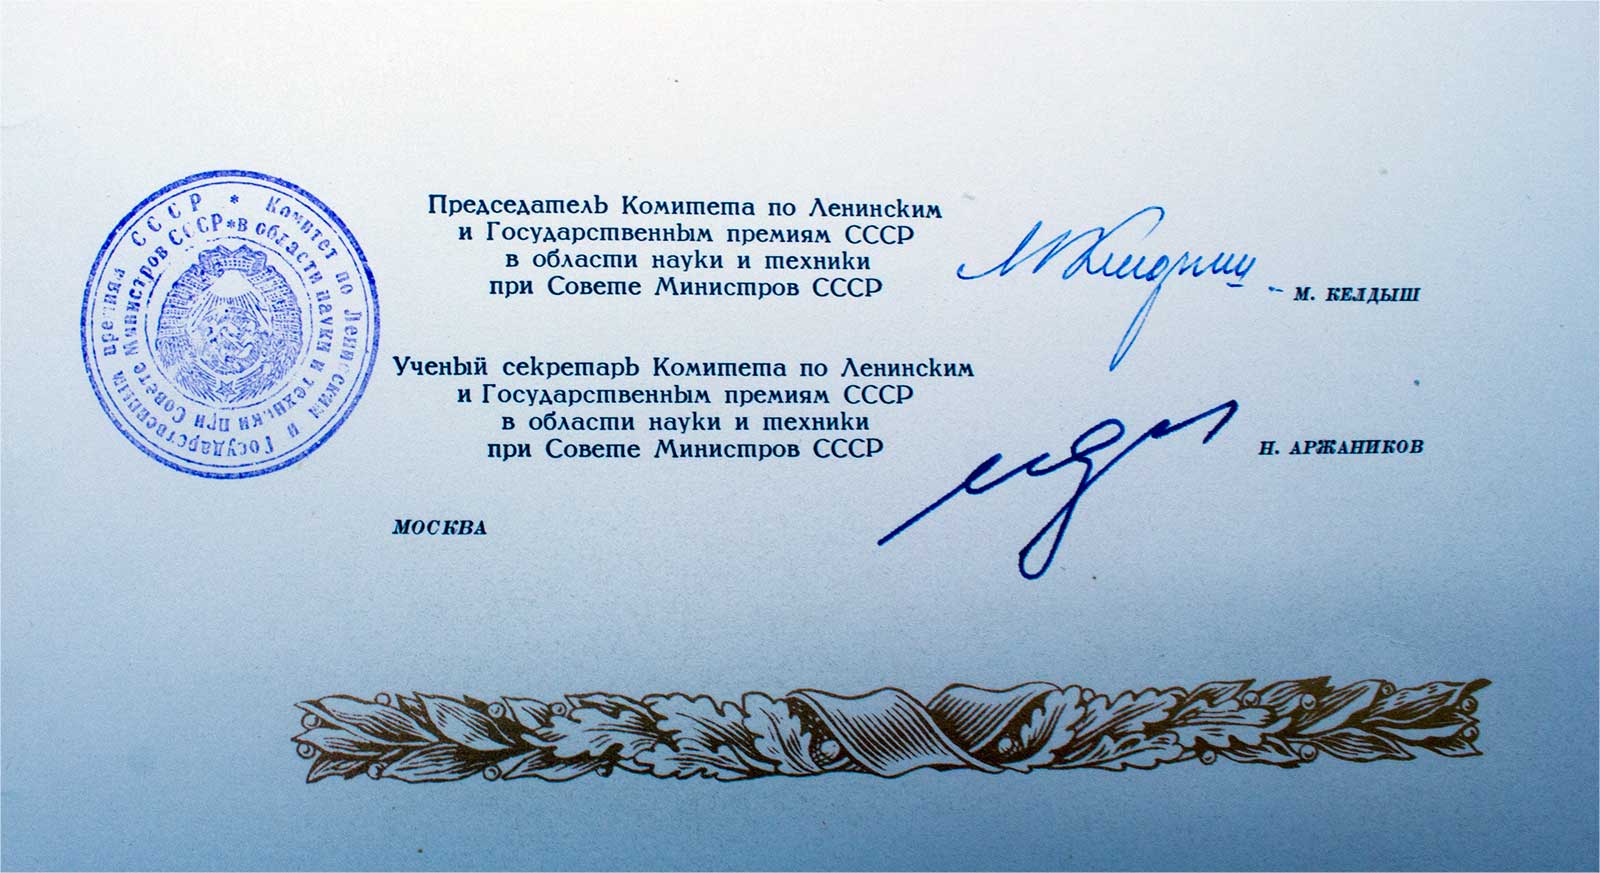 * Комитет по Ленинским и Государственным премиям СССР
* в области науки и техники при Совете Министров СССР
Председатель Комитета по Ленинским
и Государственным премиям СССР
в области науки и техники
при Совете Министров СССР
М. Келдыш
М. КЕЛДЫШ
Ученый секретарь Комитета по Ленинским
и Государственным премиям СССР
в области науки и техники
при Совете Министров СССР
Н. АРЖАНИКОВ
МОСКВА